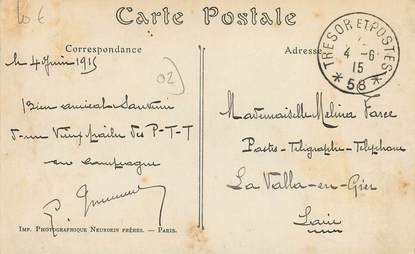 10 €
Carte Postale
Correspondance
Adresse
TRESOR ET POSTES
4 - 6
15
* 58 *
le 4 Juin 1915
02)
Bien amical Souvenir
d'un Vieux poilu des P-T-T
en campagne
Mademoiselle Melina Faree
Postes-Télégraphe-Téléphone
La Valla-en-Gier
Loire
IMP. PHOTOGRAPHIQUE NEURDEIN FRÈRES. — PARIS.